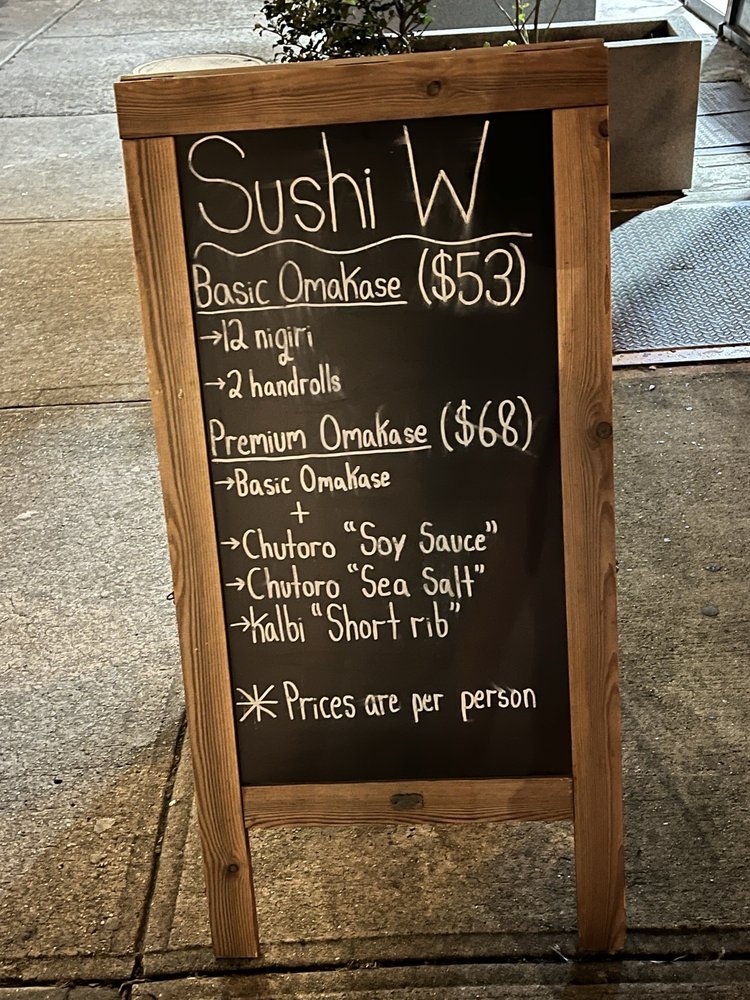 Sushi W
Basic Omakase ($53)
→12 nigiri
→2 handrolls
Premium Omakase ($68)
→Basic Omakase
+
→Chutoro "Soy Sauce"
→Chutoro "Sea Salt"
→Kalbi "Short rib"
* Prices are per person